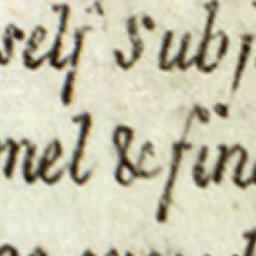 self subj
mel & fin